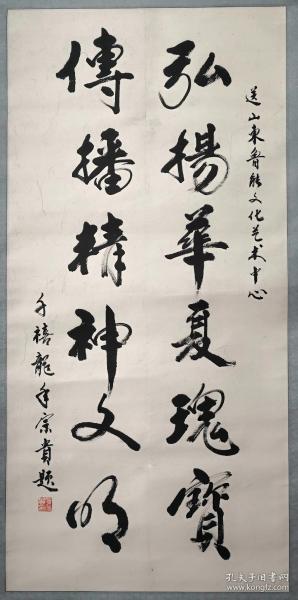 送山东鲁能文化艺术中心
弘揚華夏瑰寶
傳播精神文明
千禧龍年宗貴題
孔夫子旧书网
www.kongfz.com